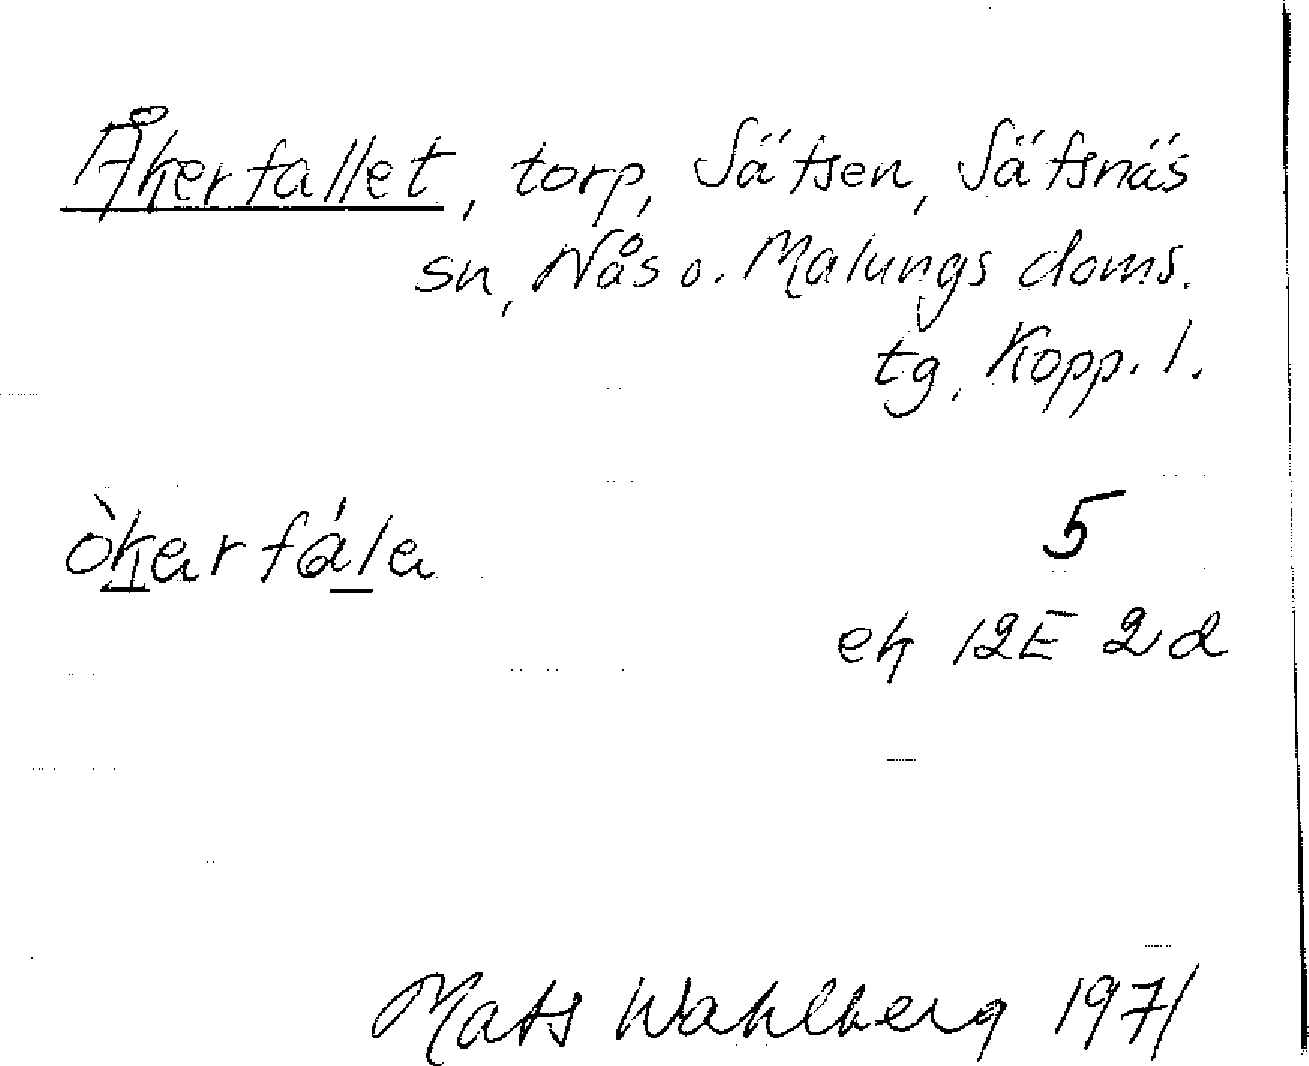 Åkerfallet, torp, Sätsen, Sätsnäs
sn, Nås o. Malungs doms.
tg, Kopp. l.
òkarfála
5
ek 12E 2d
Mats Wahlberg 1971